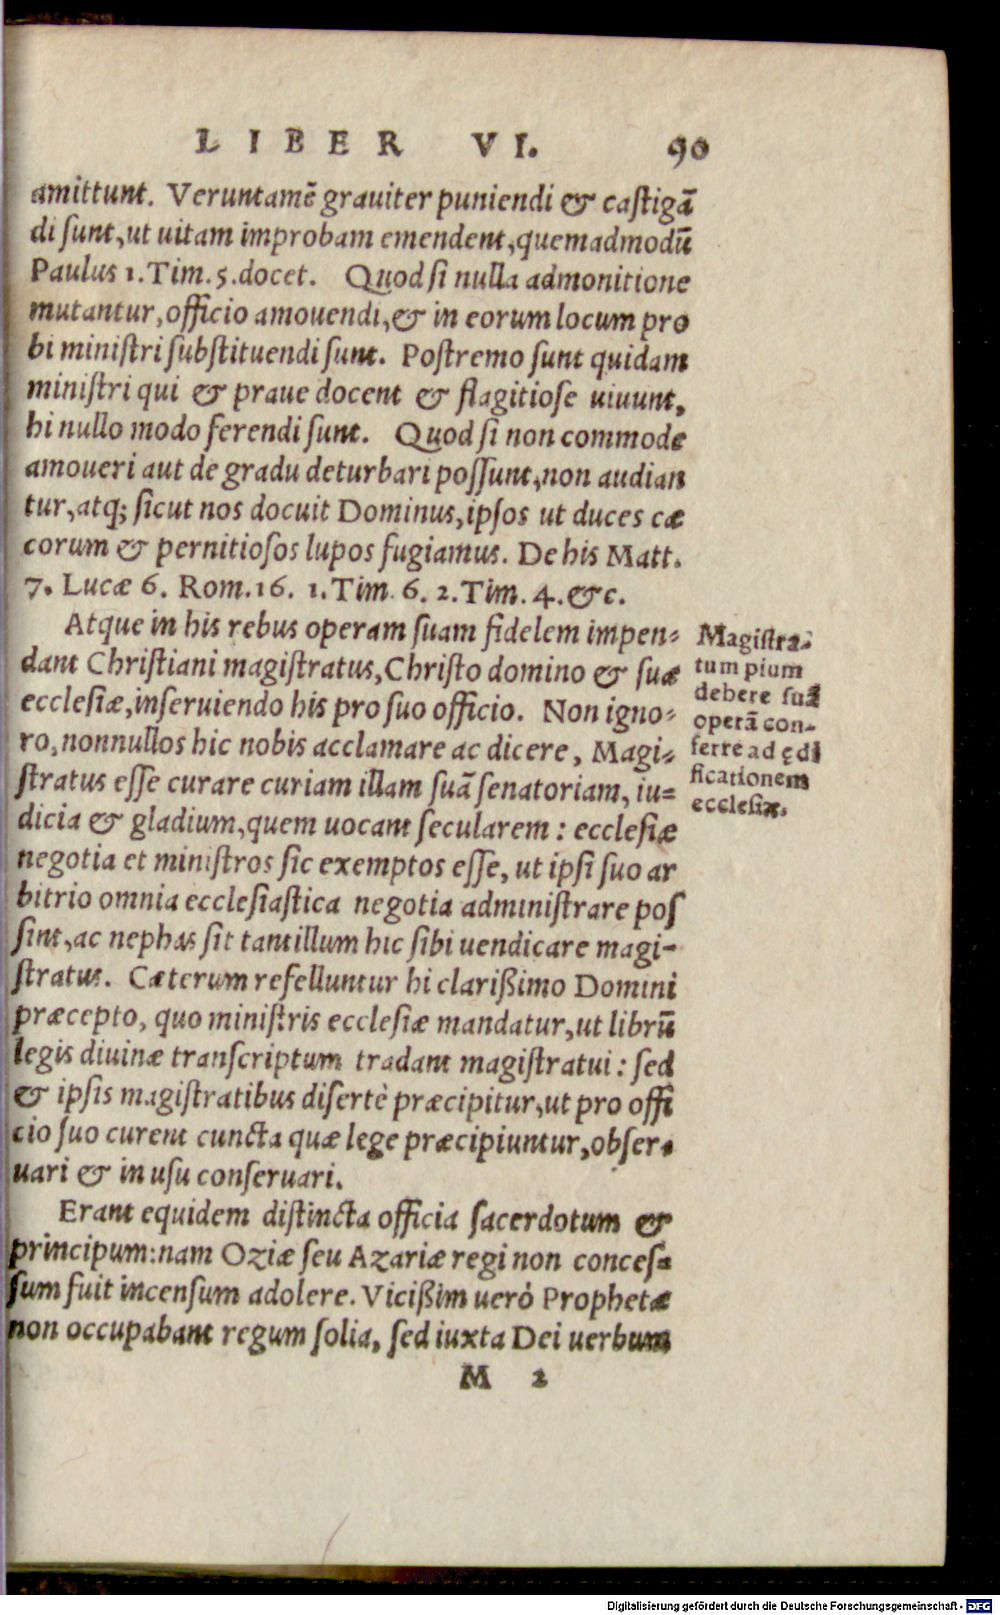 LIBER VI. 90
amittunt. Veruntamẽ grauiter puniendi & castigã
di sunt, ut uitam improbam emendent, quemadmodũ
Paulus 1. Tim. 5. docet. Quod si nulla admonitione
mutantur, officio amouendi, & in eorum locum pro
bi ministri substituendi sunt. Postremo sunt quidam
ministri qui & praue docent & flagitiose uiuunt,
hi nullo modo ferendi sunt. Quod si non commode
amoueri aut de gradu deturbari possunt, non audian
tur, atq; sicut nos docuit Dominus, ipsos ut duces cæ
corum & pernitiosos lupos fugiamus. De his Matt.
7. Lucæ 6. Rom. 16. 1. Tim. 6. 2. Tim. 4. &c.
Atque in his rebus operam suam fidelem impen-
dant Christiani magistratus, Christo domino & suæ
ecclesiæ, inseruiendo his pro suo officio. Non igno-
ro, nonnullos hic nobis acclamare ac dicere, Magi-
stratus esse curare curiam illam suã senatoriam, iu-
dicia & gladium, quem uocant secularem: ecclesiæ
negotia et ministros sic exemptos esse, ut ipsi suo ar
bitrio omnia ecclesiastica negotia administrare pos
sint, ac nephas sit tantillum hic sibi uendicare magi-
stratus. Cæterum refelluntur hi clarißimo Domini
præcepto, quo ministris ecclesiæ mandatur, ut librũ
legis diuinæ transcriptum tradant magistratui: sed
& ipsis magistratibus disertè præcipitur, ut pro offi
cio suo curent cuncta quæ lege præcipiuntur, obser-
uari & in usu conseruari.
Erant equidem distincta officia sacerdotum &
principum: nam Oziæ seu Azariæ regi non conces-
sum fuit incensum adolere. Vicißim uerò Prophetæ
non occupabant regum solia, sed iuxta Dei uerbum
M 2
Magistra-
tum pium
debere suã
operã con-
ferre ad ędi
ficationem
ecclesiæ.
Digitalisierung gefördert durch die Deutsche Forschungsgemeinschaft - DFG